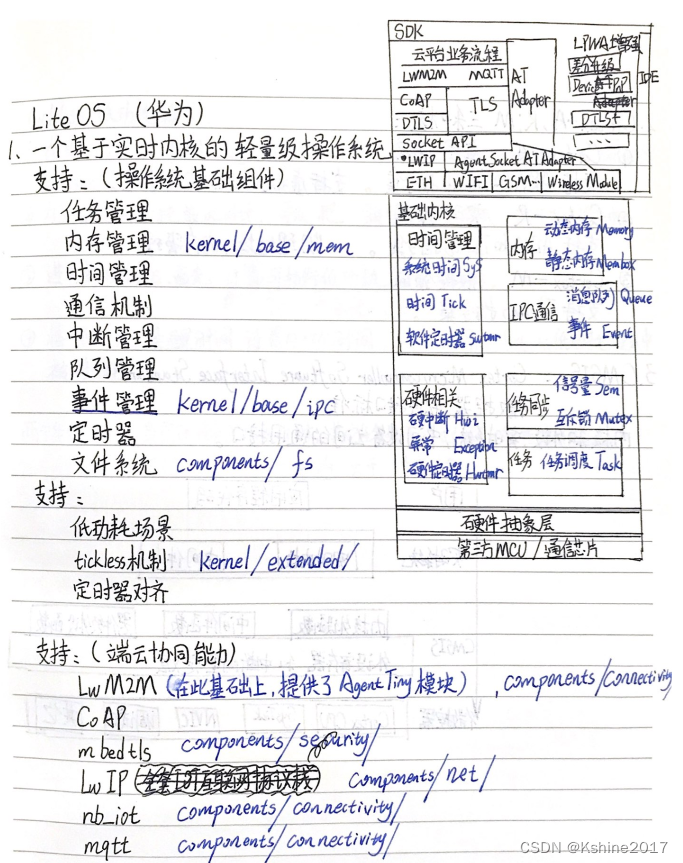 Lite OS (华为)
1、一个基于实时内核的轻量级操作系统
支持：(操作系统基础组件)
任务管理
内存管理 kernel/base/mem
时间管理
通信机制
中断管理
队列管理
事件管理 kernel/base/ipc
定时器
文件系统 components/fs
支持：
低功耗场景
tickless机制 kernel/extended/
定时器对齐
支持：(端云协同能力)
LwM2M (在此基础上，提供了AgentTiny模块) , components/connectivity
CoAP
mbedtls components/security/
LwIP components/net/
nb_iot components/connectivity/
mqtt components/connectivity/
SDK
云平台业务流程
LWM2M MQTT
CoAP TLS
DTLS
Socket API
*LWIP Agent Socket AT Adapter
ETH WIFI GSM... Wireless Module
AT Adapter
LPWA增强
差分升级
DTLS+
...
IDE
基础内核
时间管理
系统时间 Sys
时间 Tick
软件定时器 Swtmr
内存
动态内存 Memory
静态内存 Membox
IPC通信
消息队列 Queue
事件 Event
硬件相关
硬中断 Hwi
异常 Exception
硬件定时器 Hwtmr
任务同步
信号量 Sem
互斥锁 Mutex
任务 任务调度 Task
硬件抽象层
第三方MCU/通信芯片
CSDN @Kshine2017